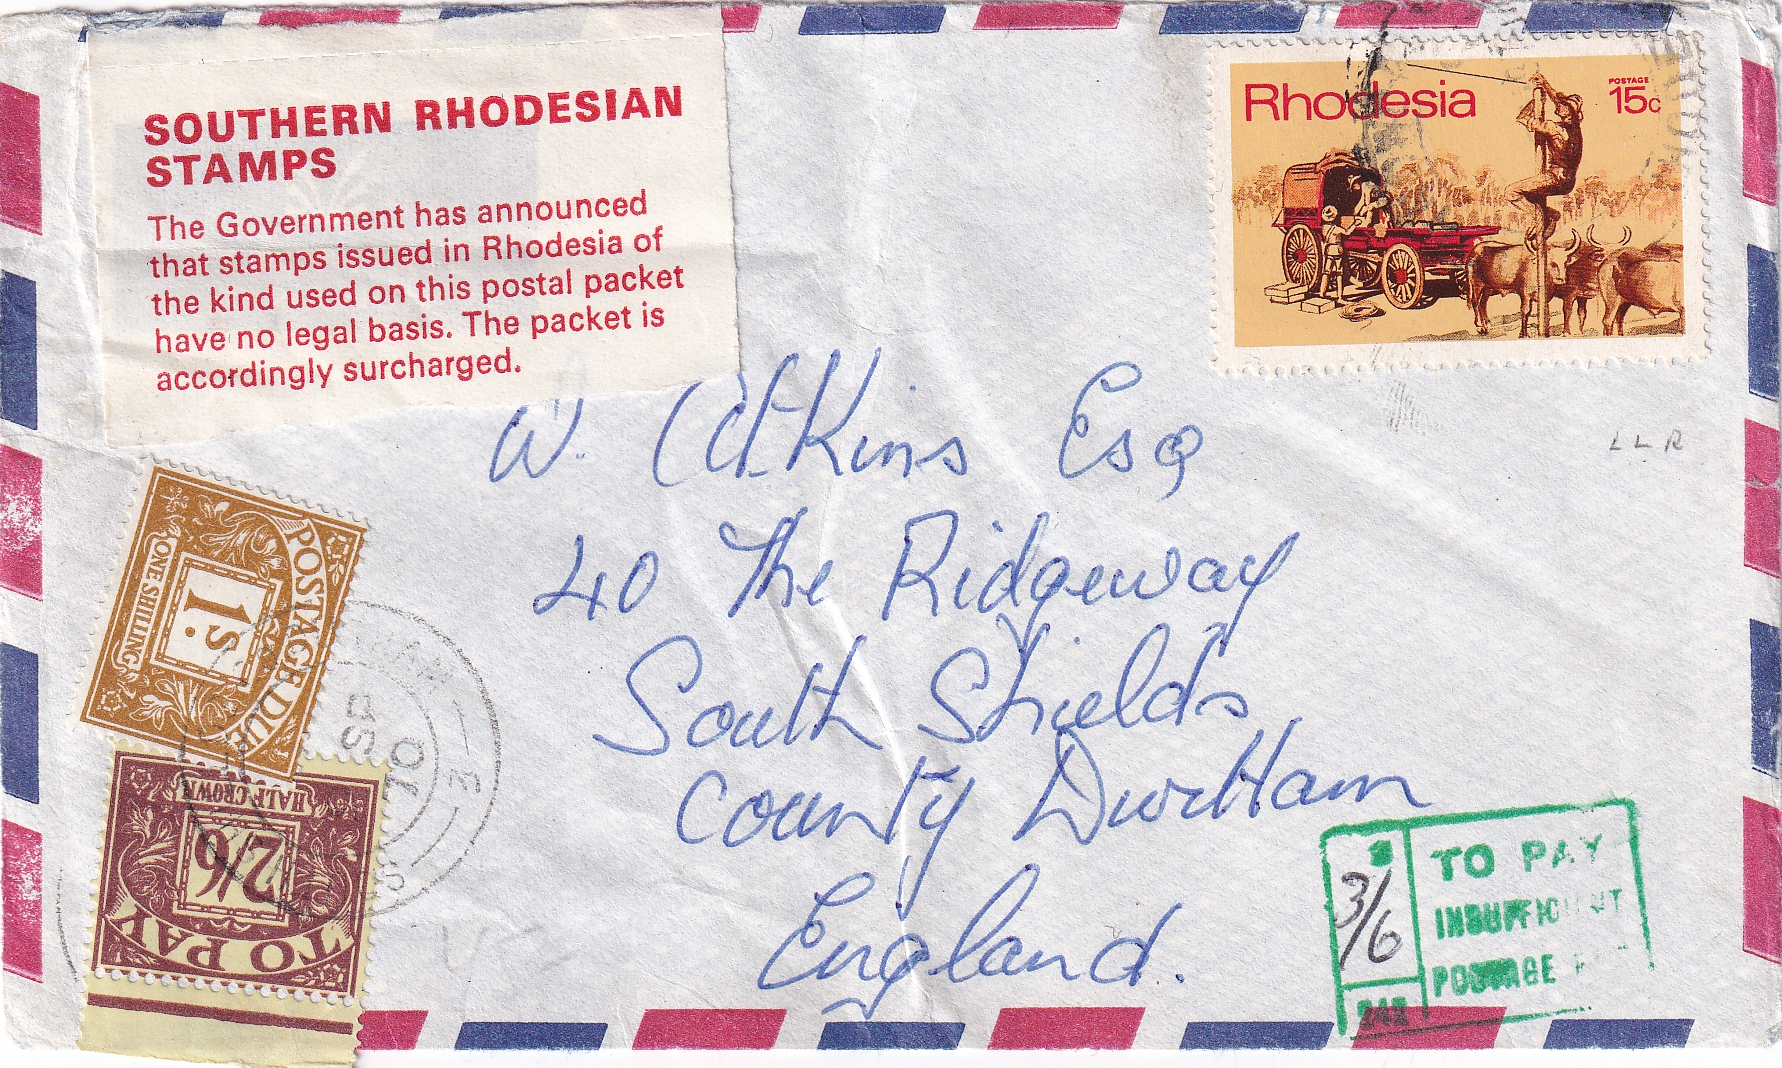 SOUTHERN RHODESIAN
STAMPS
The Government has announced
that stamps issued in Rhodesia of
the kind used on this postal packet
have no legal basis. The packet is
accordingly surcharged.
Rhodesia
POSTAGE
15c
LLR
W. Atkins Esq
40 The Ridgeway
South Shields
County Durham
England.
POSTAGE DUE
ONE SHILLING
1s.
HALF CROWN
2/6
TO PAY
3/6
TO PAY
INSUFFICIENT
POSTAGE
242